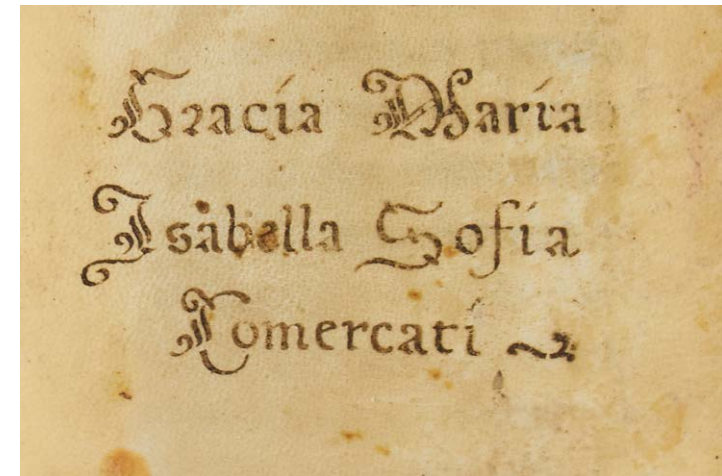 Gracia Maria
Isabella Sofia
Comercati